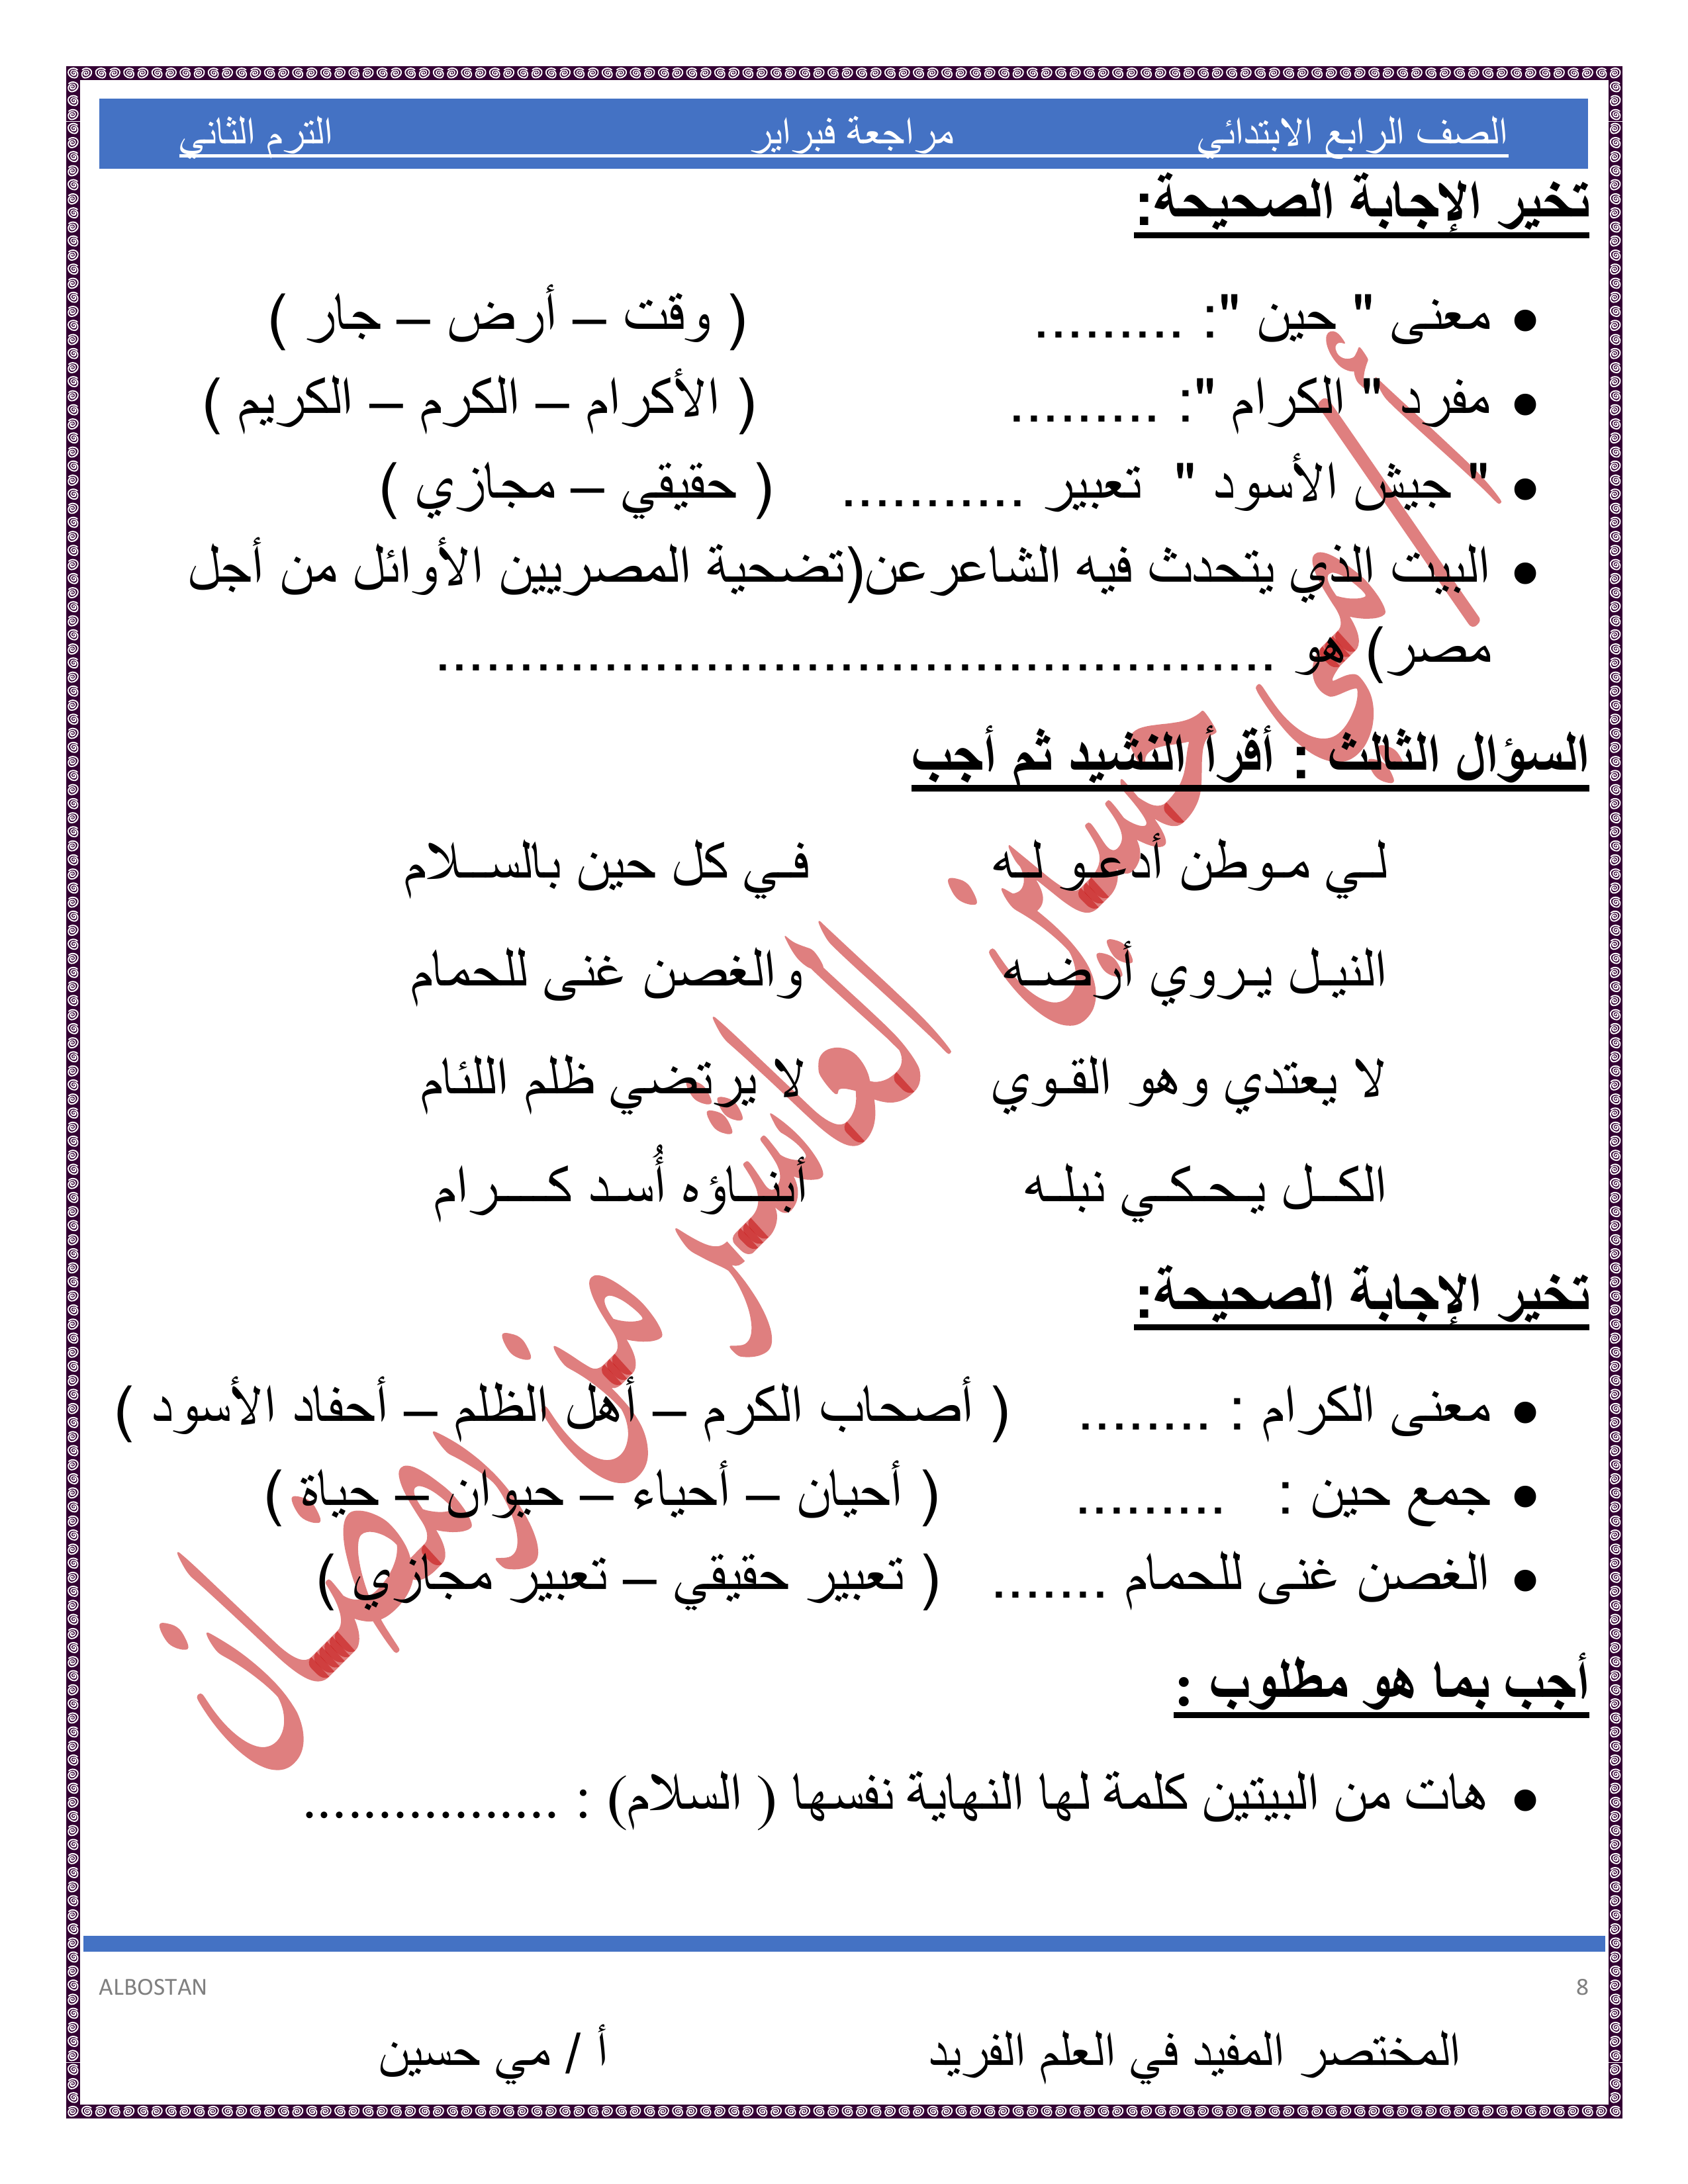 الصف الرابع الابتدائي مراجعة فبراير الترم الثاني
تخير الإجابة الصحيحة:
• معنى " حين ": ......... ( وقت – أرض – جار )
• مفرد " الكرام ": ......... ( الأكرام – الكرم – الكريم )
• " جيش الأسود " تعبير ........... ( حقيقي – مجازي )
• البيت الذي يتحدث فيه الشاعرعن(تضحية المصريين الأوائل من أجل
مصر) هو ...................................................
السؤال الثالث : أقرأ النشيد ثم أجب
لـي مـوطن أدعـو لـه فـي كل حين بالســلام
النيـل يـروي أرضـه والغصن غنى للحمام
لا يعتدي وهو القـوي لا يرتضي ظلم اللئام
الكــل يـحـكـي نبلـه أبنــاؤه أُسـد كــــرام
تخير الإجابة الصحيحة:
• معنى الكرام : ........ ( أصحاب الكرم – أهل الظلم – أحفاد الأسود )
• جمع حين : ......... ( أحيان – أحياء – حيوان – حياة )
• الغصن غنى للحمام ....... ( تعبير حقيقي – تعبير مجازي )
أجب بما هو مطلوب :
• هات من البيتين كلمة لها النهاية نفسها ( السلام) : .................
أ / مي حسين العاشر من رمضان
ALBOSTAN 8
المختصر المفيد في العلم الفريد أ / مي حسين